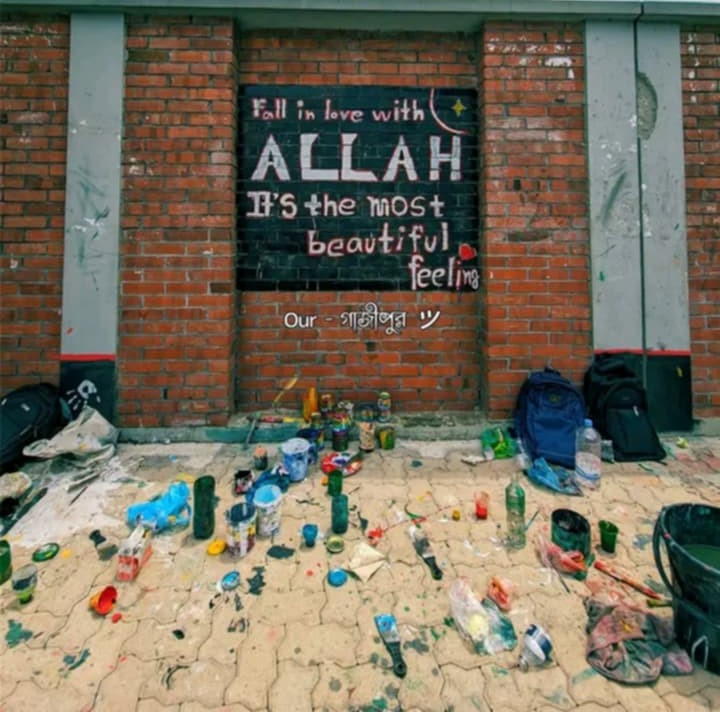 Fall in love with
ALLAH
It's the most
beautiful
feeling
Our - গাজীপুর ツ